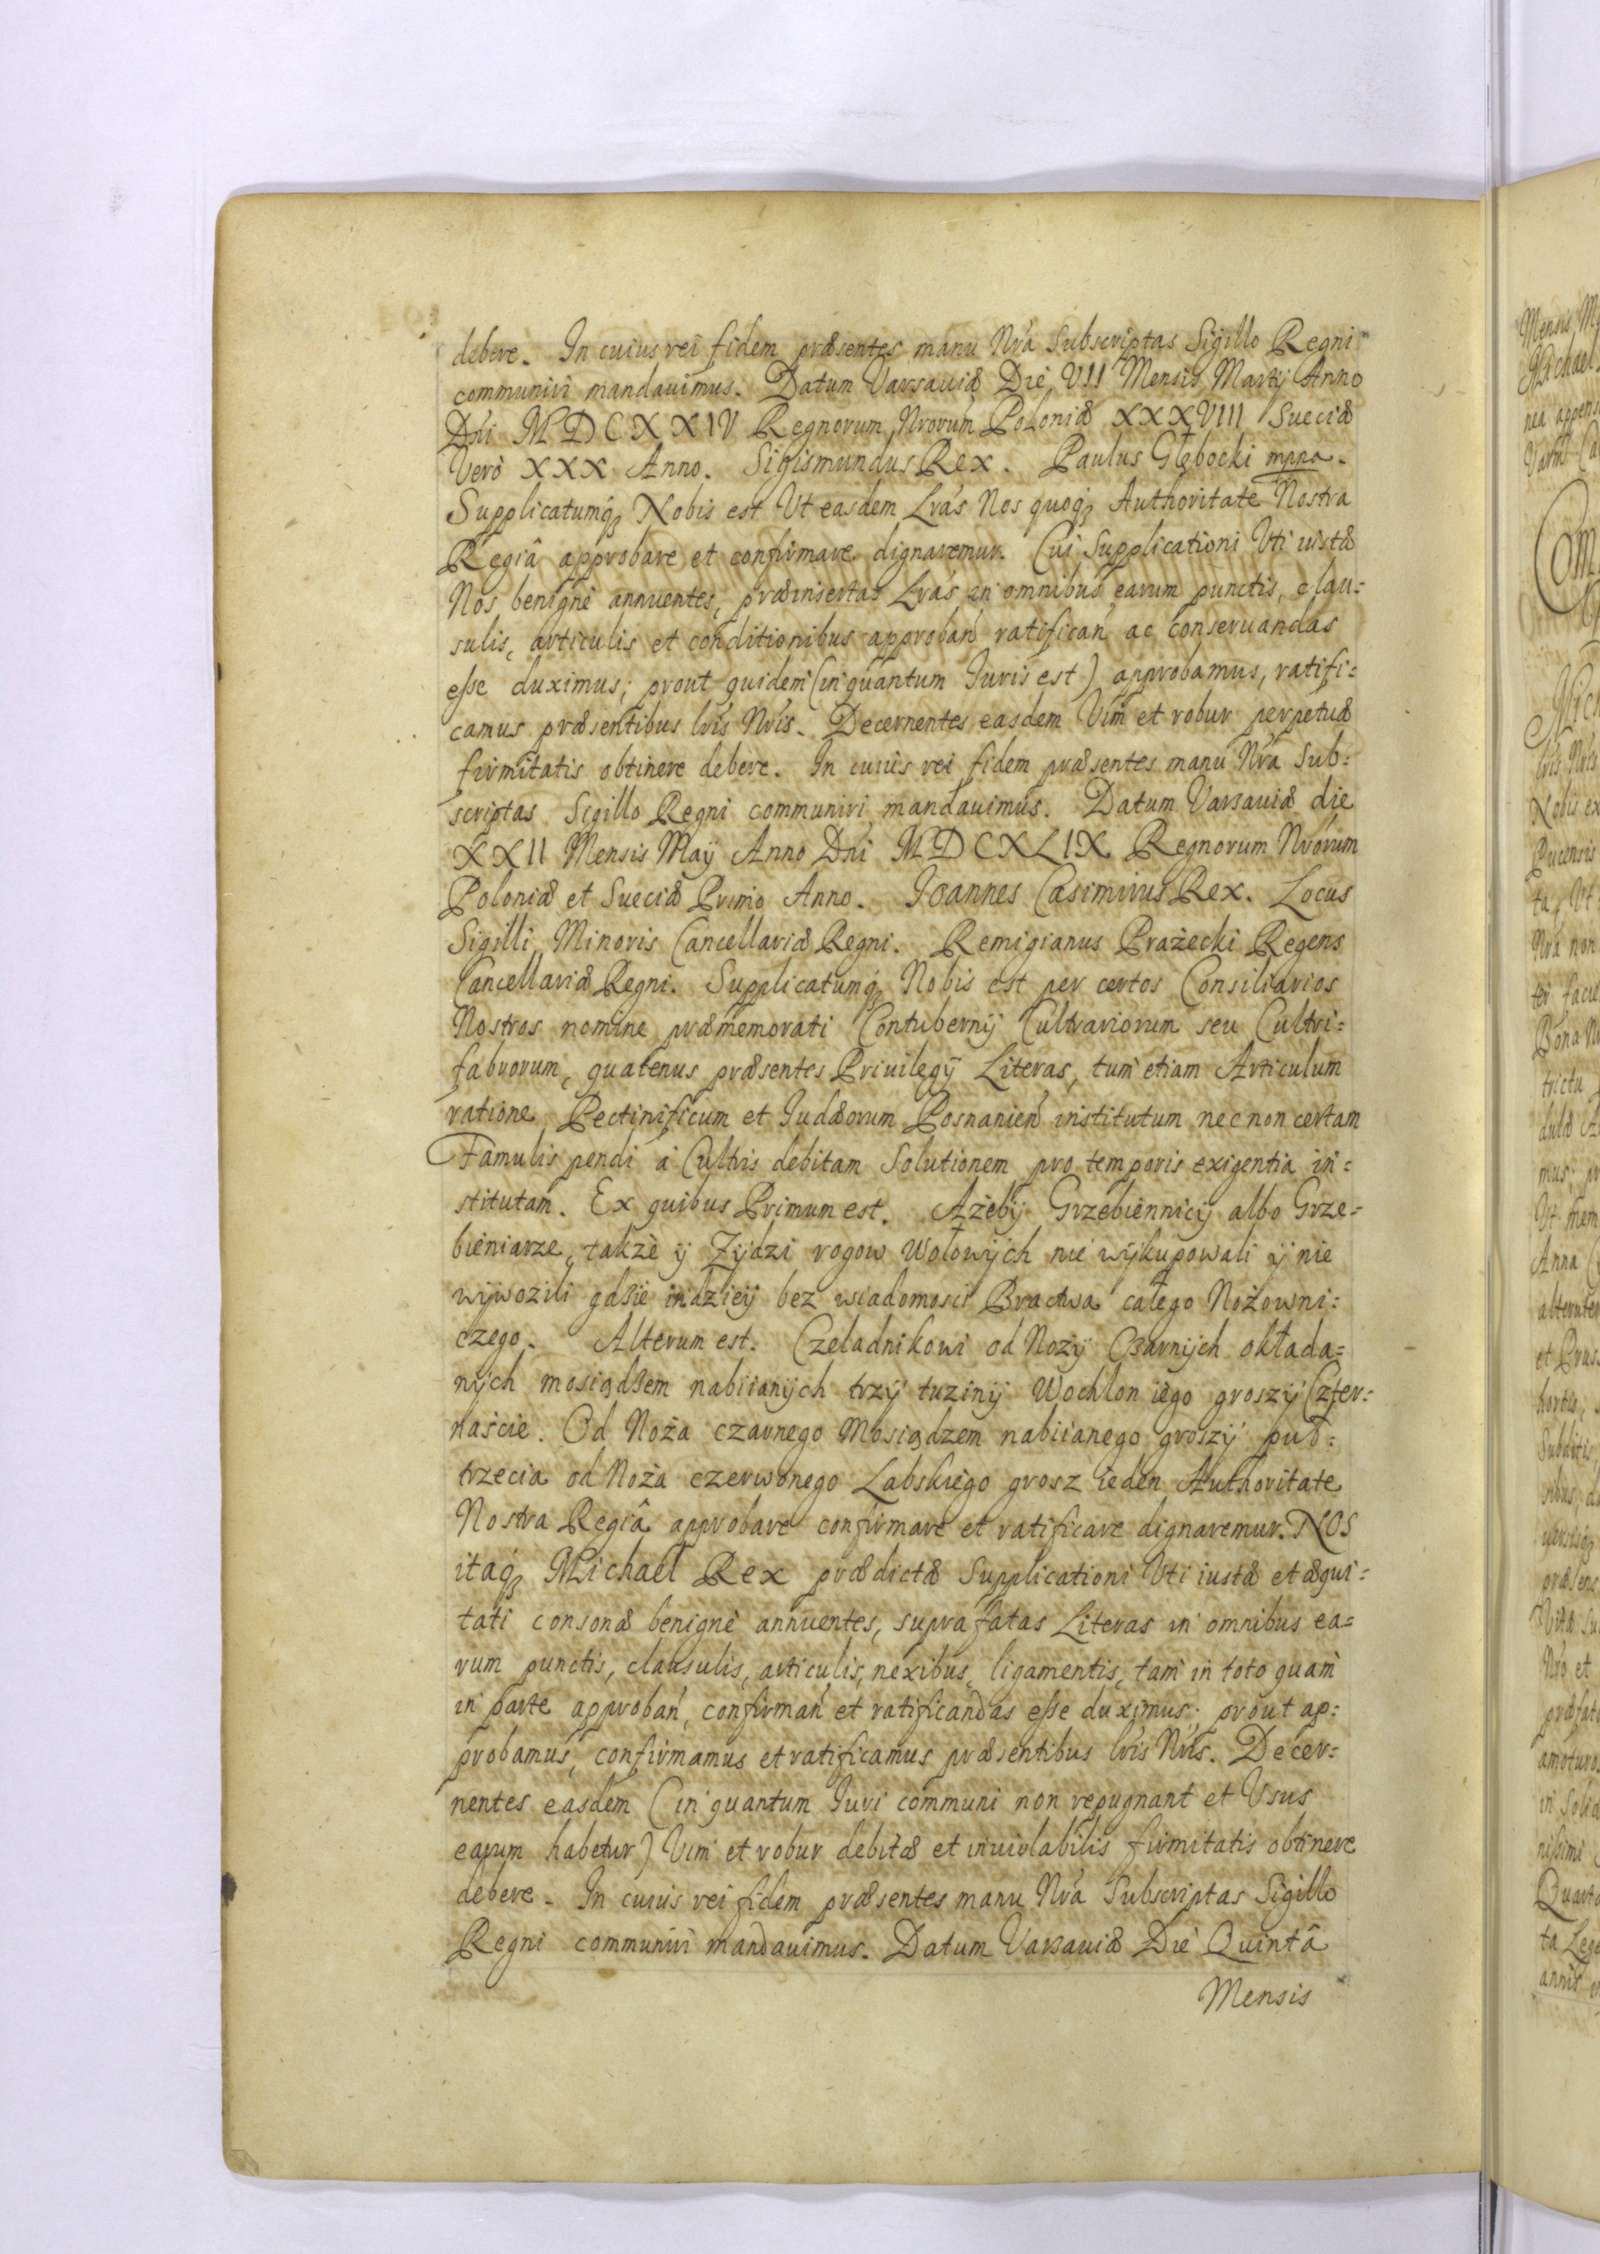 debere. In cuius rei fidem præsentes manu Nrá Subscriptas Sigillo Regni
communiri mandauimus. Datum Varsauiæ Die VII Mensis Martij Anno
Dńi MDCXXIV Regnorum Nrorum Poloniæ XXXVIII Sueciæ
Verò XXX Anno. Sigismundus Rex. Paulus Głębocki mppa.
Supplicatumq3 Nobis est Vt easdem Lrás Nos quoq3 Authoritate Nostra
Regiâ approbare et confirmare dignaremur. Cui Supplicationi Vti iustæ
Nos benignè annuentes, præinsertas Lrás in omnibus earum punctis, clau=
sulis, articulis et conditionibus approbań ratificań ac conseruandas
esse duximus; prout quidem (in quantum Iuris est) approbamus, ratifi=
camus præsentibus lrís Nrís. Decernentes easdem Vim et robur perpetuæ
firmitatis obtinere debere. In cuius rei fidem præsentes manu Nrá Sub=
scriptas Sigillo Regni communiri mandauimus. Datum Varsauiæ die
XXII Mensis Maÿ Anno Dńi MDCXLIX Regnorum Nrórum
Poloniæ et Sueciæ Primo Anno. Ioannes Casimirus Rex. Locus
Sigilli Minoris Cancellariæ Regni. Remigianus Prażecki Regens
Cancellariæ Regni. Supplicatumq3 Nobis est per certos Consiliarios
Nostros nomine præmemorati Contubernij Cultrariorum seu Cultri=
fabrorum, quatenus præsentes Priuilegÿ Literas, tum etiam Articulum
ratione Pectinificum et Iudæorum Posnanień institutum nec non certam
Famulis pendi à Cultris debitam Solutionem pro temporis exigentia in=
stitutam. Ex quibus Primum est. Ażebÿ Grzebiennicÿ albo Grze=
bieniarze, takżè ÿ Zÿdzi rogow Wołowÿch nie wÿkupowali ÿ nie
wÿwozili gdźie indzieÿ bez wiadomosci Bractwa całego Nożowni=
czego. Alterum est. Czeladnikowi od Nożÿ Czarnÿch okłada=
nÿch mosiądzem nabiianÿch trzÿ tuzinÿ Wochlon iego groszÿ Czter=
naście. Od Noża czarnego Mosiądzem nabiianego groszÿ puł=
trzecia od Noża czerwonego Labskiego grosz ieden Authoritate
Nostra Regiâ approbare confirmare et ratificare dignaremur. NOS
itaq3 Michael Rex prædictæ Supplicationi Vti iustæ et æqui=
tati consonæ benignè annuentes, supra fatas Literas in omnibus ea=
rum punctis, clausulis, articulis, nexibus, ligamentis, tam in toto quam
in parte approbań, confirmań et ratificandas esse duximus; prout ap=
probamus, confirmamus et ratificamus præsentibus lrís Nrís. Decer=
nentes easdem (in quantum Iuri communi non repugnant et Vsus
earum habetur) Vim et robur debitæ et inuiolabilis firmitatis obtinere
debere. In cuius rei fidem præsentes manu Nrá Subscriptas Sigillo
Regni communiri mandauimus. Datum Varsauiæ Die Quintâ
Mensis